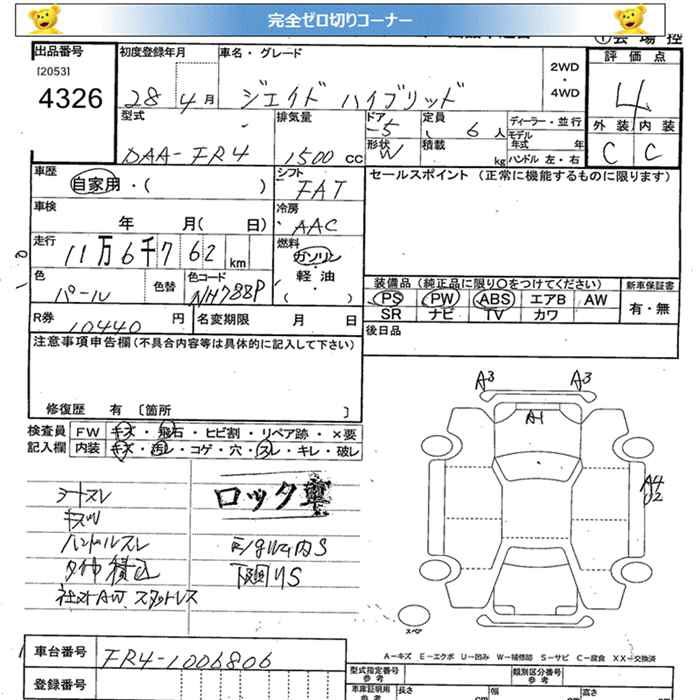 完全ゼロ切りコーナー
①会場控
出品番号 初度登録年月 車名・グレード 2WD・4WD 評価点
[2053]
4326 28年4月 ジェイド ハイブリッド 4
型式 排気量 ドア 定員 ディーラー・並行 外装 内装
DAA-FR4 1500cc -5 6人 モデル年式 年 C C
形状 W 積載 kg ハンドル 左・右
車歴 シフト セールスポイント (正常に機能するものに限ります)
自家用・( ) FAT
車検 冷房
年 月( 日) AAC
走行 燃料
11万6千762km ガソリン
軽油
( )
色 色替 色コード 装備品(純正品に限り○をつけてください) 新車保証書
パール NH788P PS PW ABS エアB AW 有・無
SR ナビ TV カワ
R券 10440円 名変期限 月 日 後日品
注意事項申告欄(不具合内容等は具体的に記入して下さい)
修復歴 有 [箇所 ]
検査員 FW キズ・飛石・ヒビ割・リペア跡・×要
記入欄 内装 キズ・汚レ・コゲ・穴・スレ・キレ・破レ
A3 A3
A1
A4
U2
シートスレ ロック車
キズリ
ハンドルスレ E/gルーム内S
タイヤ積込 下廻りS
社外AW スタットレス
スペア
A-キズ E-エクボ U-凹み W-補修跡 S-サビ C-腐食 XX-交換済
車台番号 FR4-1006806 型式指定番号 参考 類別区分番号 参考
登録番号 車庫証明用 参考 長さ cm 幅 cm 高さ cm